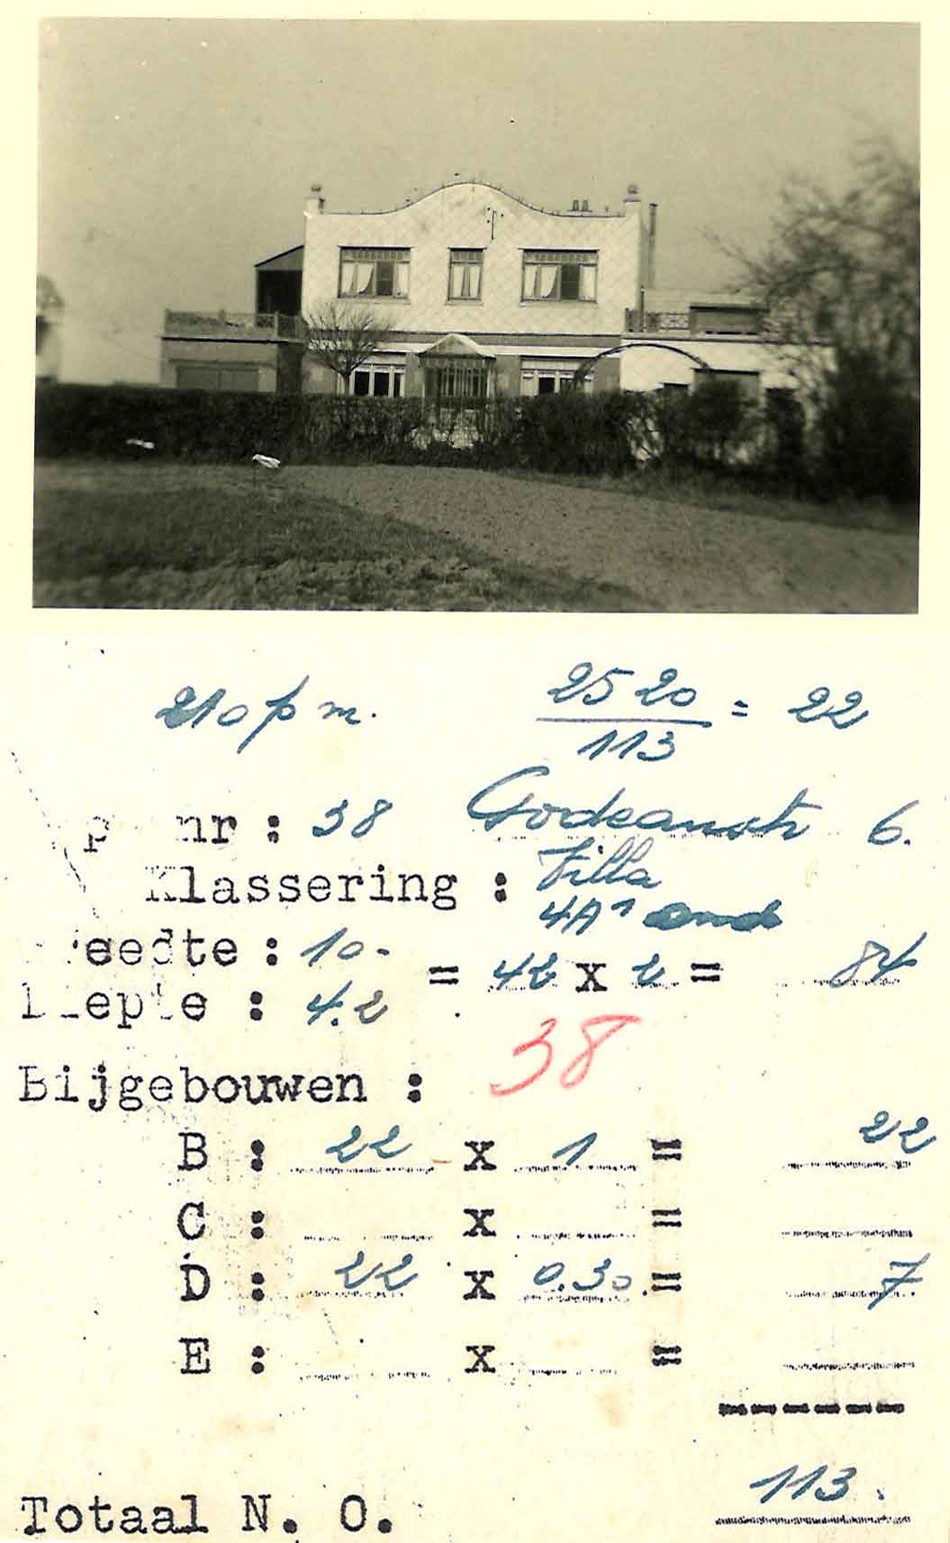 210 p m.
2520
113 = 22
p nr : 38 Godeaustr 6.
Klassering : Villa
4A1 and
eedte : 10.
= 42 x 2 = 84
iepte : 4.2
38
Bijgebouwen :
B : 22 x 1 = 22
C : x =
D : 22 x 0.30 = 7
E : x =
Totaal N. O. 113.